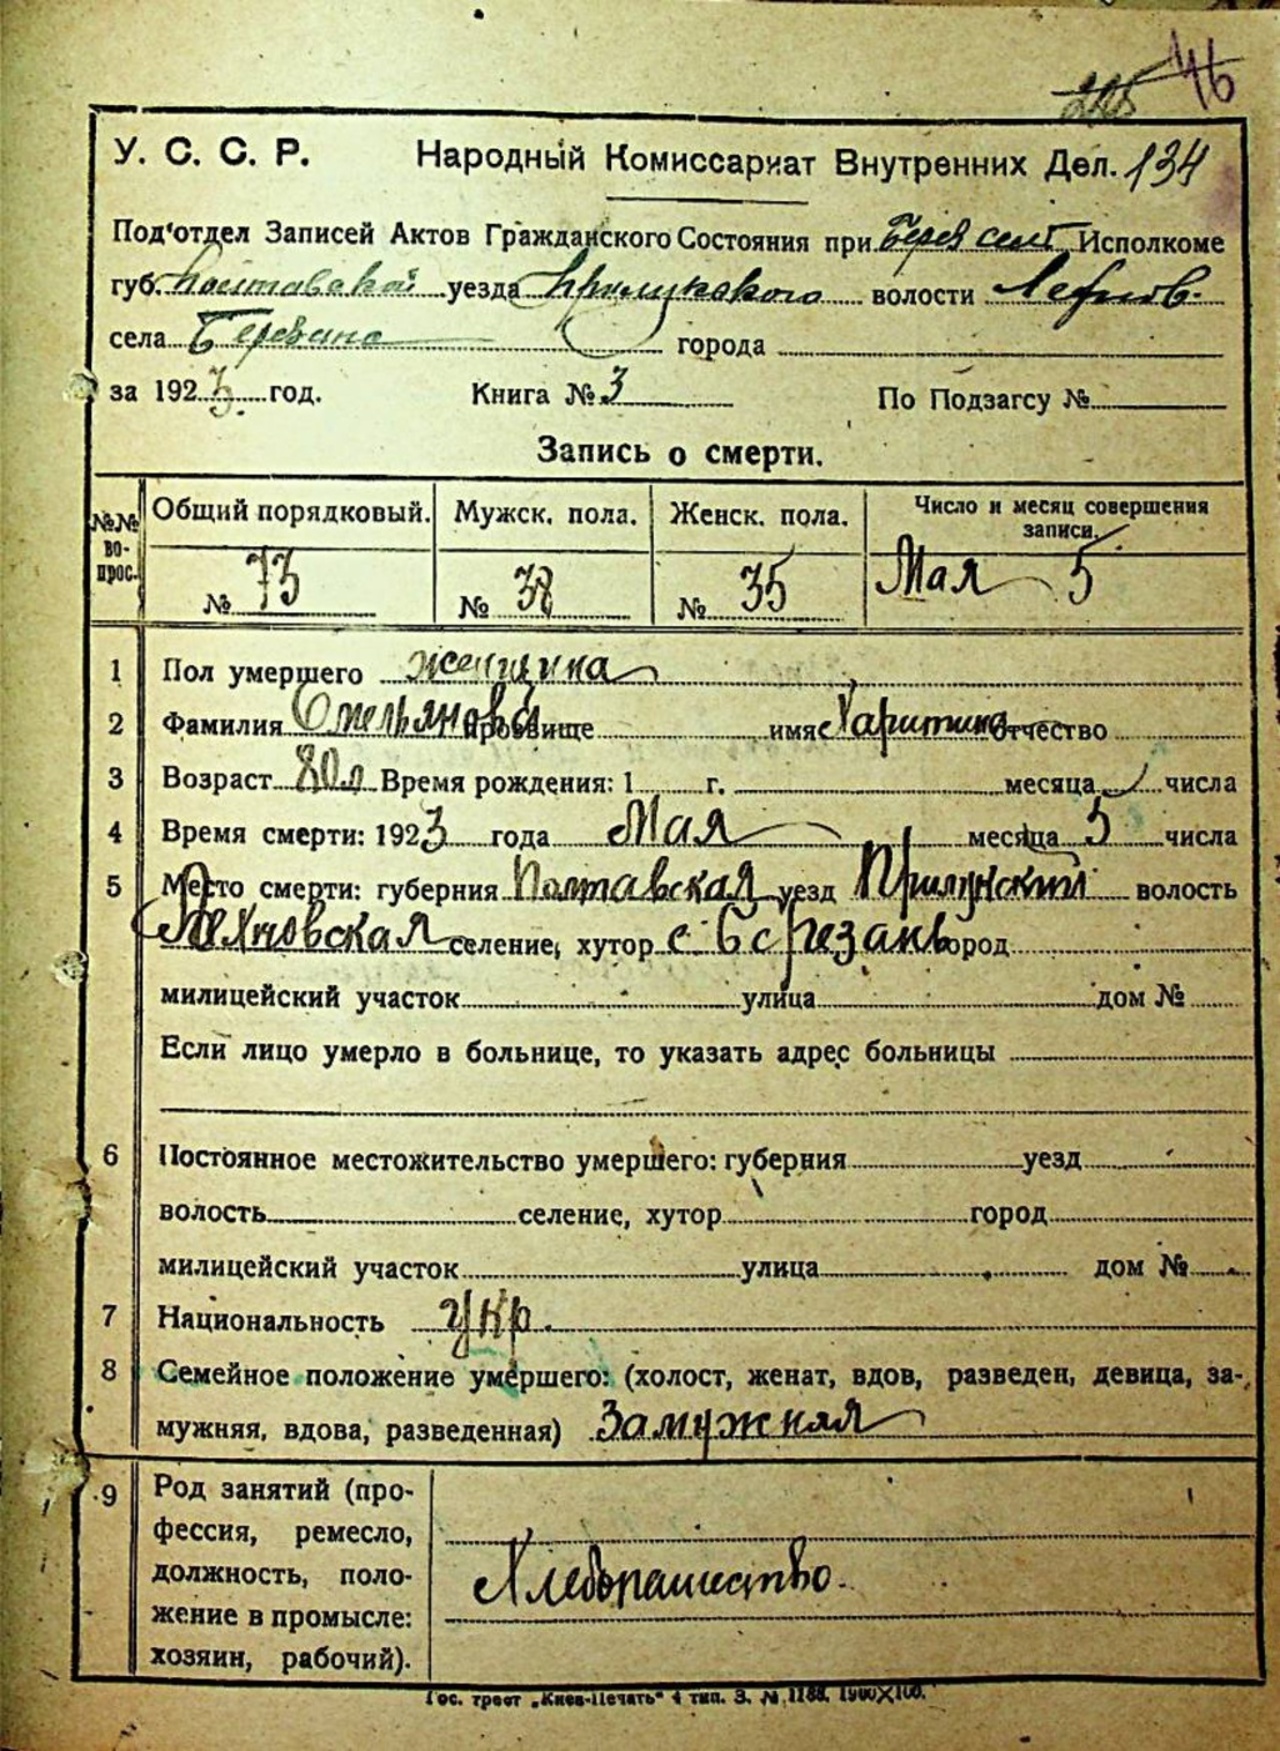 46
У. С. С. Р. Народный Комиссариат Внутренних Дел. 134
Под'отдел Записей Актов Гражданского Состояния при Исполкоме
губ. Полтавской уезда Прилукского волости
села города
за 1923 год. Книга № 3 По Подзагсу №
Запись о смерти.
№№ во-прос. Общий порядковый. Мужск. пола. Женск. пола. Число и месяц совершения записи.
№ 73 № 38 № 35 Мая 5
1 Пол умершего женщина
2 Фамилия Омельянова прозвище имя Харитина отчество
3 Возраст 80 л Время рождения: 1 г. месяца числа
4 Время смерти: 1923 года Мая месяца 5 числа
5 Место смерти: губерния Полтавская уезд Прилукский волость
селение, хутор город
милицейский участок улица дом №
Если лицо умерло в больнице, то указать адрес больницы
6 Постоянное местожительство умершего: губерния уезд
волость селение, хутор город
милицейский участок улица дом №
7 Национальность укр.
8 Семейное положение умершего: (холост, женат, вдов, разведен, девица, за-
мужняя, вдова, разведенная) Замужная
9 Род занятий (про-
фессия, ремесло,
должность, поло- Хлебопашество.
жение в промысле:
хозяин, рабочий).
Гос. трест „Киев-Печать" 4 тип. З. № 1188. 1900×100.